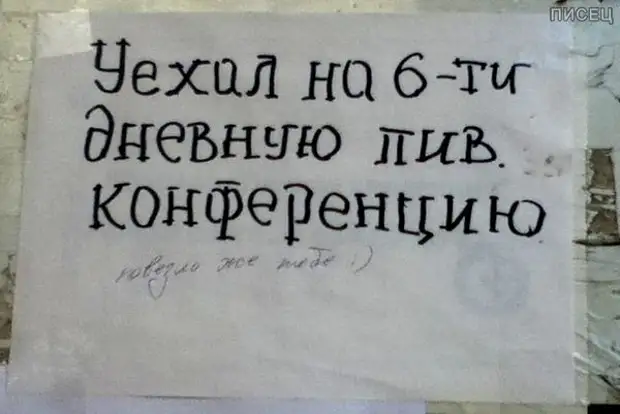 ПИСЕЦ
Уехал на 6-ти
дневную пив.
конференцию.
повезло же тебе :)